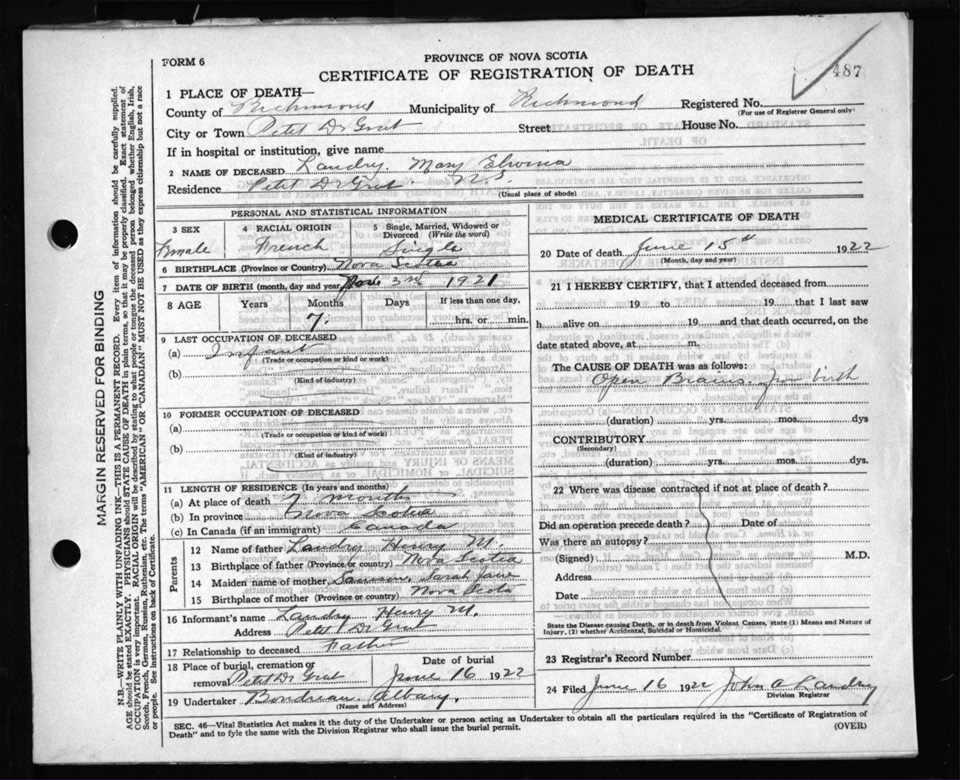 FORM 6
PROVINCE OF NOVA SCOTIA
CERTIFICATE OF REGISTRATION OF DEATH
487
1 PLACE OF DEATH—
County of Richmond Municipality of Richmond Registered No.
(For use of Registrar General only)
City or Town Petit De Grat Street House No.
If in hospital or institution, give name
2 NAME OF DECEASED Landry, Mary
Residence Petit De Grat N.S.
(Usual place of abode)
PERSONAL AND STATISTICAL INFORMATION
3 SEX 4 RACIAL ORIGIN 5 Single, Married, Widowed or Divorced (Write the word)
Female French Single
6 BIRTHPLACE (Province or Country) Nova Scotia
7 DATE OF BIRTH (month, day and year) 1921
8 AGE Years Months Days If less than one day,
7. hrs. or min.
9 LAST OCCUPATION OF DECEASED
(a) Infant
(Trade or occupation or kind or work)
(b)
(Kind of industry)
10 FORMER OCCUPATION OF DECEASED
(a)
(Trade or occupation or kind of work)
(b)
(Kind of industry)
11 LENGTH OF RESIDENCE (In years and months)
(a) At place of death 7 months
(b) In province Nova Scotia
(c) In Canada (if an immigrant) Canada
Parents
12 Name of father Landry Henry M.
13 Birthplace of father (Province or country) Nova Scotia
14 Maiden name of mother Samson, Sarah Jane
15 Birthplace of mother (Province or Country) Nova Scota
16 Informant's name Landry Henry M.
Address Petit De Grat
17 Relationship to deceased Father
18 Place of burial, cremation or removal Petit De Grat Date of burial June 16 1922
19 Undertaker Boudreau Albany.
(Name and Address)
MEDICAL CERTIFICATE OF DEATH
20 Date of death June 15th 1922
(Month, day and year)
21 I HEREBY CERTIFY, that I attended deceased from
19 to 19 that I last saw
h alive on 19 and that death occurred, on the
date stated above, at m.
The CAUSE OF DEATH was as follows:
Open Brains from birth
(duration) yrs. mos. dys
CONTRIBUTORY
(Secondary)
(duration) yrs. mos. dys.
22 Where was disease contracted if not at place of death?
Did an operation precede death? Date of
Was there an autopsy?
(Signed) M.D.
Address
Date
State the Disease causing Death, or in death from Violent Causes, state (1) Means and Nature of Injury, (2) whether Accidental, Suicidal or Homicidal.
23 Registrar's Record Number
24 Filed June 16 1922 John A Landry
Division Registrar
SEC. 46—Vital Statistics Act makes it the duty of the Undertaker or person acting as Undertaker to obtain all the particulars required in the "Certificate of Registration of
Death" and to fyle the same with the Division Registrar who shall issue the burial permit.
(OVER)
MARGIN RESERVED FOR BINDING
N.B.—WRITE PLAINLY WITH UNFADING INK—THIS IS A PERMANENT RECORD. Every item of information should be carefully supplied.
AGE should be stated EXACTLY. PHYSICIANS should STATE CAUSE OF DEATH in plain terms, so that it may be properly classified. Exact statement of
OCCUPATION is very important. RACIAL ORIGIN will be described by stating to what people or tongue the deceased person belonged whether English, Irish,
Scotch, French, German, Russian, Ruthenian, etc. The terms "AMERICAN" OR "CANADIAN" MUST NOT BE USED as they express citizenship but not a race
or people. See instructions on back of Certificate.